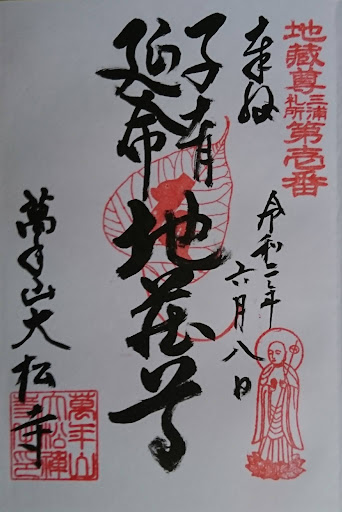 地蔵尊三浦札所第壱番
奉拝
令和二年六月八日
子育
延命
地蔵尊
萬年山大松寺
萬年山
大松禅
寺之印